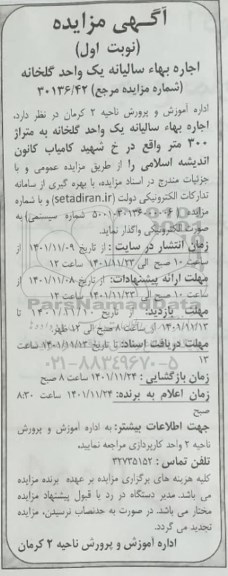 آگهی مزایده
(نوبت اول)
اجاره بهاء سالیانه یک واحد گلخانه
(شماره مزایده مرجع) ۳۰۱۳۶/۴۲
اداره آموزش و پرورش ناحیه ۲ کرمان در نظر دارد،
اجاره بهاء سالیانه یک واحد گلخانه به متراژ
۳۰۰ متر واقع در خ شهید کامیاب کانون
اندیشه اسلامی را از طریق مزایده عمومی و با
جزئیات مندرج در اسناد مزایده، با بهره گیری از سامانه
تدارکات الکترونیکی دولت (setadiran.ir) و با شماره
مزایده ( شماره سیستمی) به
صورت الکترونیکی واگذار نماید.
زمان انتشار در سایت : از تاریخ ۱۴۰۱/۱۱/۰۹ از
ساعت ۱۰ صبح الی ۱۴۰۱/۱۱/۲۳ ساعت ۱۲
مهلت ارائه پیشنهادات: از تاریخ ۱۴۰۱/۱۱/۰۸ از
ساعت ۱۰ صبح الی ۱۴۰۱/۱۱/۲۳ ساعت ۱۲
مهلت بازدید: از تاریخ ۱۴۰۱/۱۱/۱۰ تا
۱۴۰۱/۱۱/۱۳ از ساعت ۸ صبح الی ۱۲ ظهر
مهلت دریافت اسناد: تا تاریخ ساعت
۱۳
زمان بازگشایی : ۱۴۰۱/۱۱/۲۴ ساعت ۸ صبح
زمان اعلام به برنده: ۱۴۰۱/۱۱/۲۴ ساعت ۸:۳۰
صبح
جهت اطلاعات بیشتر: به اداره آموزش و پرورش
ناحیه ۲ واحد کارپردازی مراجعه نمایید،
تلفن تماس : ۳۲۷۳۵۱۵۲
کلیه هزینه های برگزاری مزایده بر عهده برنده مزایده
می باشد. مدیر دستگاه در رد یا قبول پیشنهاد مزایده
مختار می باشد. در صورت به حدنصاب نرسیدن، مزایده
تجدید می گردد.
اداره آموزش و پرورش ناحیه ۲ کرمان
ParsNamadData
۰۲۱-۸۸۳۴۹۶۷۰-۵